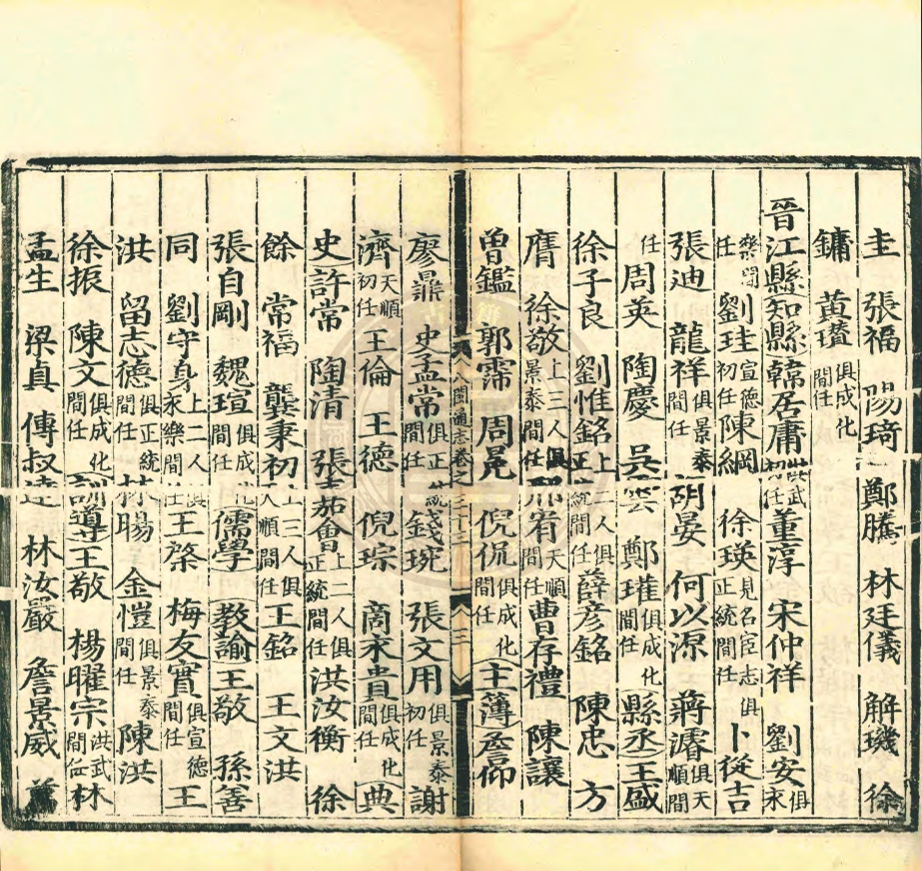 圭　張福　陽琦　鄭騰　林廷儀　解璣　徐
鏞　黄瓚俱成化間任
晉江縣知縣韓居庸洪武初任董淳　宋仲祥　劉安俱永
樂間任　劉珪宣德初任陳綱　徐瑛見名宦志俱正統間任　卜從吉
張迪　龍祥俱景泰間任　胡晏　何以源　蔣濬俱天順間
任　周英　陶慶　吳雲　鄭瓘俱成化間任縣丞王盛
徐子良　劉惟銘上二人俱正統間任薛彥銘　陳忠　方
膺　徐敬上三人俱景泰間任邢宥天順間任曹存禮　陳讓
曾鑑　郭霈　周冕　倪侃俱成化間任主薄仰
八閩通志卷之三十二　三
廖鼎　史孟常俱正統間任錢琬　張文用俱景泰初任謝
濟天順初任王倫　王德　倪琮　商來貴俱成化間任典
史許常　陶清　張茄會上二人俱正統間任洪汝衡　徐
餘　常福　龔秉初上三人俱天順間任王銘　王文洪
張自剛　魏瑄俱成化間任儒學教諭王敬　孫善
同　劉守身上二人俱永樂間任王棨　梅友實俱宣德間任王
洪　留志德俱正統間任林暘　金愷俱景泰間任　陳洪
徐振　陳文俱成化間任訓導王敬　楊曜宗洪武間任林
孟生　梁真　傅叔逵　林汝嚴　詹景威